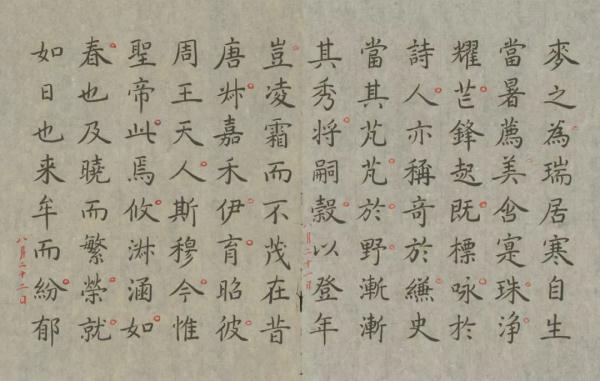 麥之為瑞居寒自生
當暑薦美含寔珠淨
耀芒鋒起既標咏於
詩人亦稱奇於縑史
當其芃芃於野漸漸
其秀将嗣穀以登年
八月二十一日
豈凌霜而不茂在昔
唐叔嘉禾伊育昭彼
周王天人斯穆今惟
聖帝此焉攸淑涵如
春也及曉而繁榮就
如日也来牟而紛郁
八月二十二日